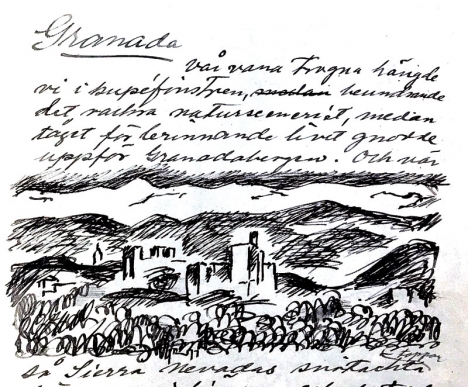 Granada
vår vana trogna hängde
vi i kupéfönstren, beundrande
det vackra natursceneriet, medan
tåget för brinnande livet gnodde
uppför Granadabergen. Och var
så Sierra Nevadas snötäckta